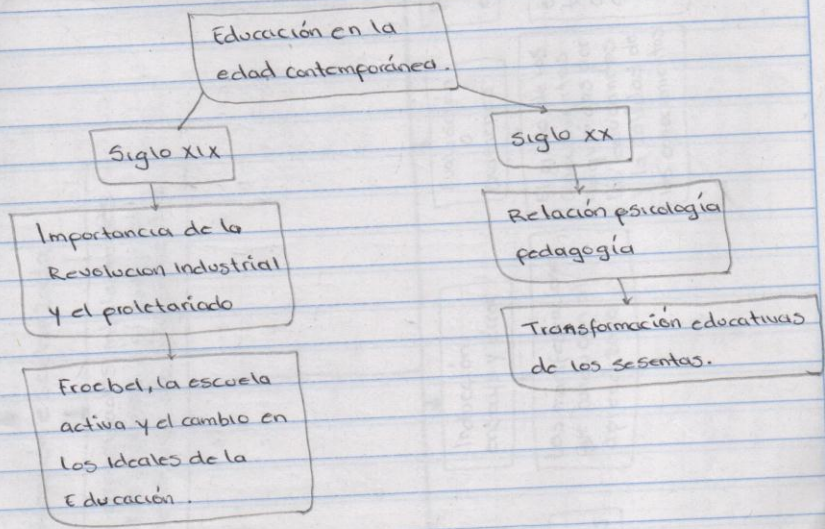 Educación en la
edad contemporánea.
Siglo XIX
Importancia de la
Revolucion industrial
y el proletariado
Froebel, la escuela
activa y el cambio en
los ideales de la
Educación.
siglo XX
Relación psicología
pedagogía
Transformación educativas
de los sesentas.